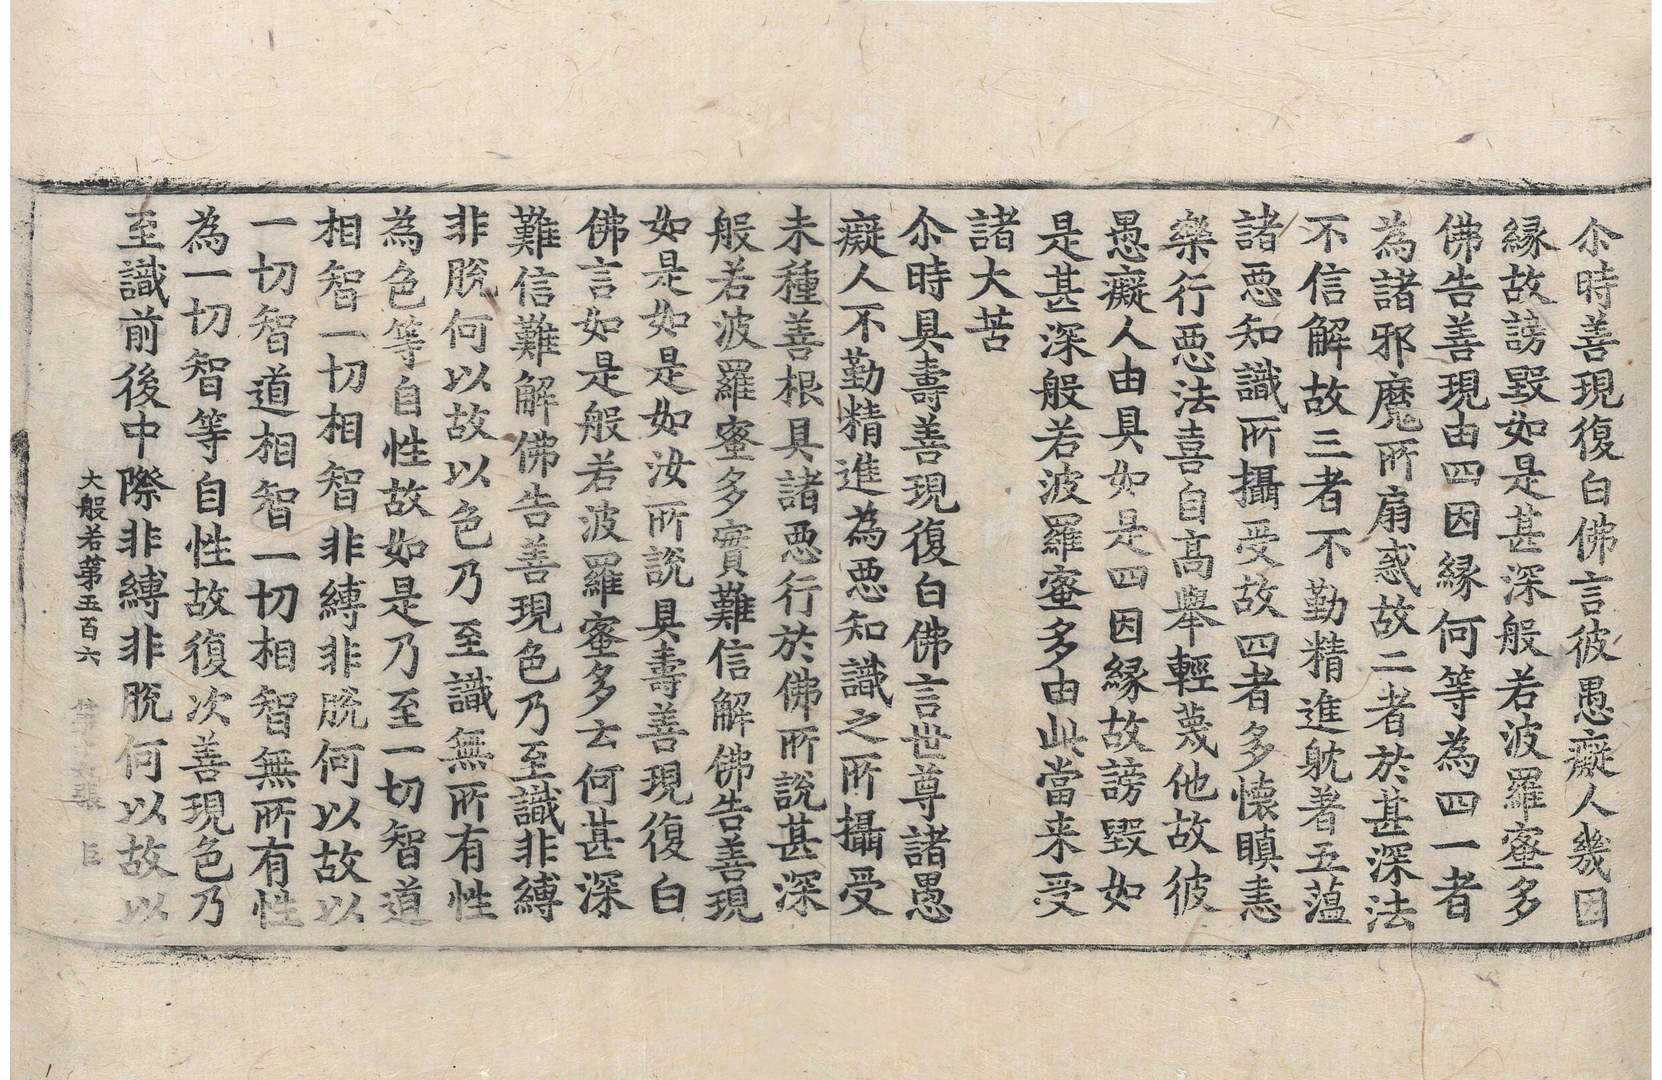 尒時善現復白佛言彼愚癡人幾因
縁故謗毀如是甚深般若波羅蜜多
佛告善現由四因縁何等為四一者
為諸邪魔所扇惑故二者於甚深法
不信解故三者不勤精進躭著五蕰
諸惡知識所攝受故四者多懐瞋恚
樂行惡法喜自髙舉輕蔑他故彼
愚癡人由具如是四因縁故謗毀如
是甚深般若波羅蜜多由此當来受
諸大苦
尒時具壽善現復白佛言世尊諸愚
癡人不勤精進為惡知識之所攝受
未種善根具諸惡行於佛所說甚深
般若波羅蜜多實難信解佛告善現
如是如是如汝所說具壽善現復白
佛言如是般若波羅蜜多云何甚深
難信難解佛告善現色乃至識非縛
非脫何以故以色乃至識無所有性
為色等自性故如是乃至一切智道
相智一切相智非縛非脫何以故以
一切智道相智一切相智無所有性
為一切智等自性故復次善現色乃
至識前後中際非縛非脫何以故以
大般若第五百六 張 臣